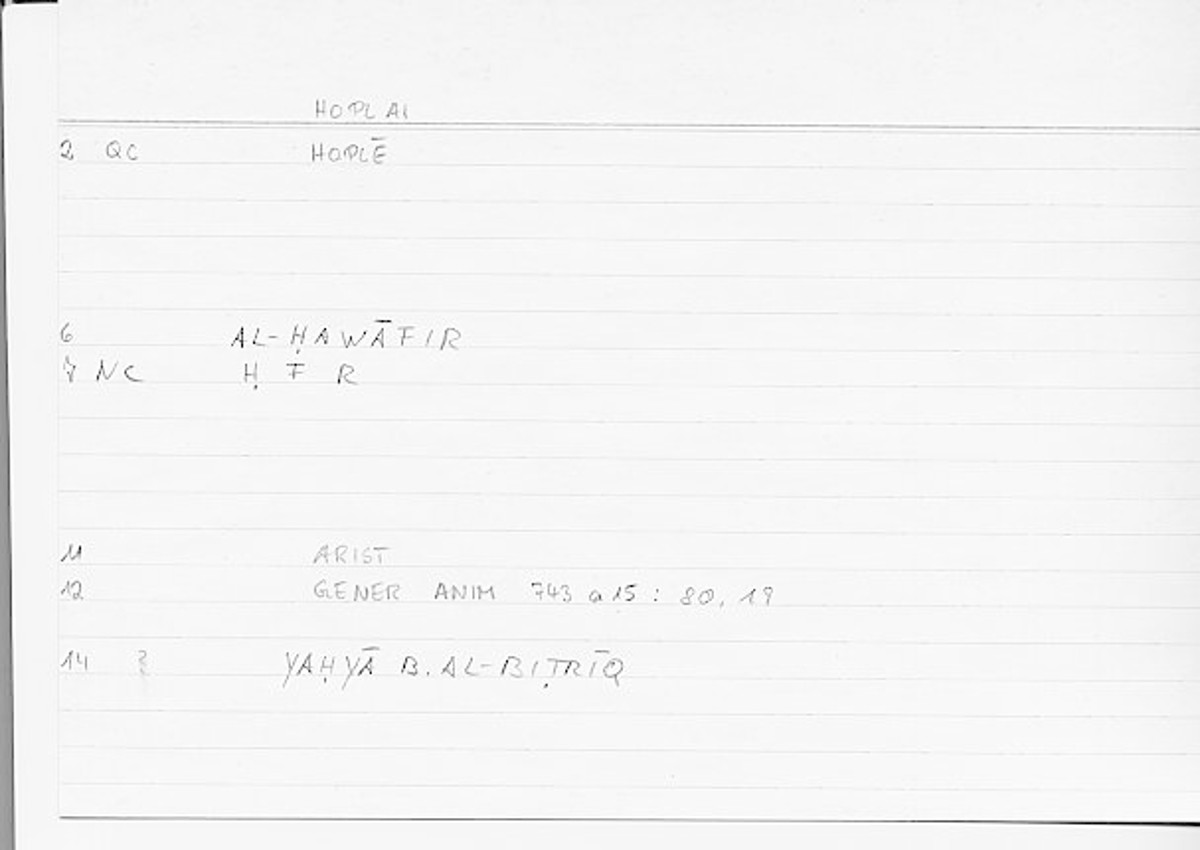 HOPLAI
2 QC HOPLĒ
6 AL-ḤAWĀFIR
7 NC Ḥ F R
11 ARIST
12 GENER ANIM 743 a 15 : 80, 19
14 YAḤYĀ B. AL-BIṬRĪQ